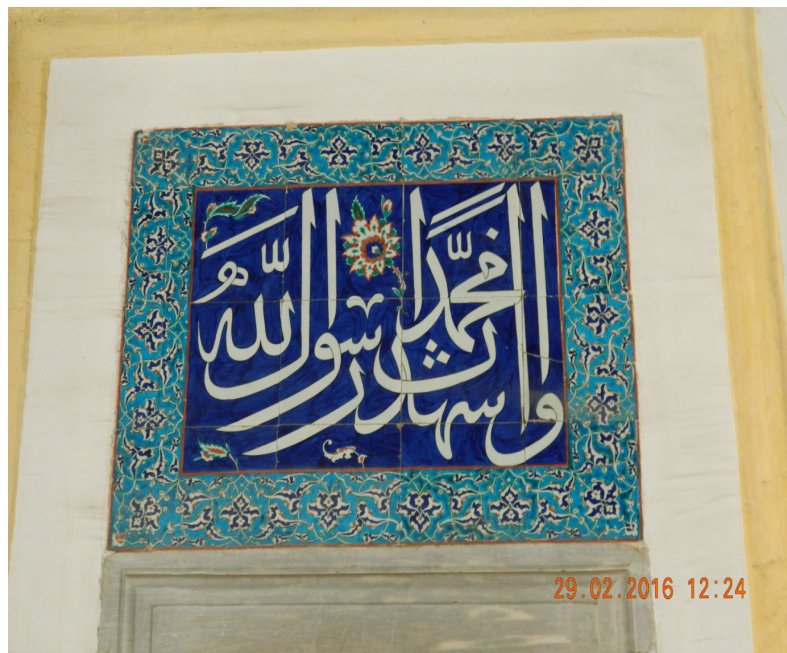 واشهد ان محمدا رسول الله
29.02.2016 12:24